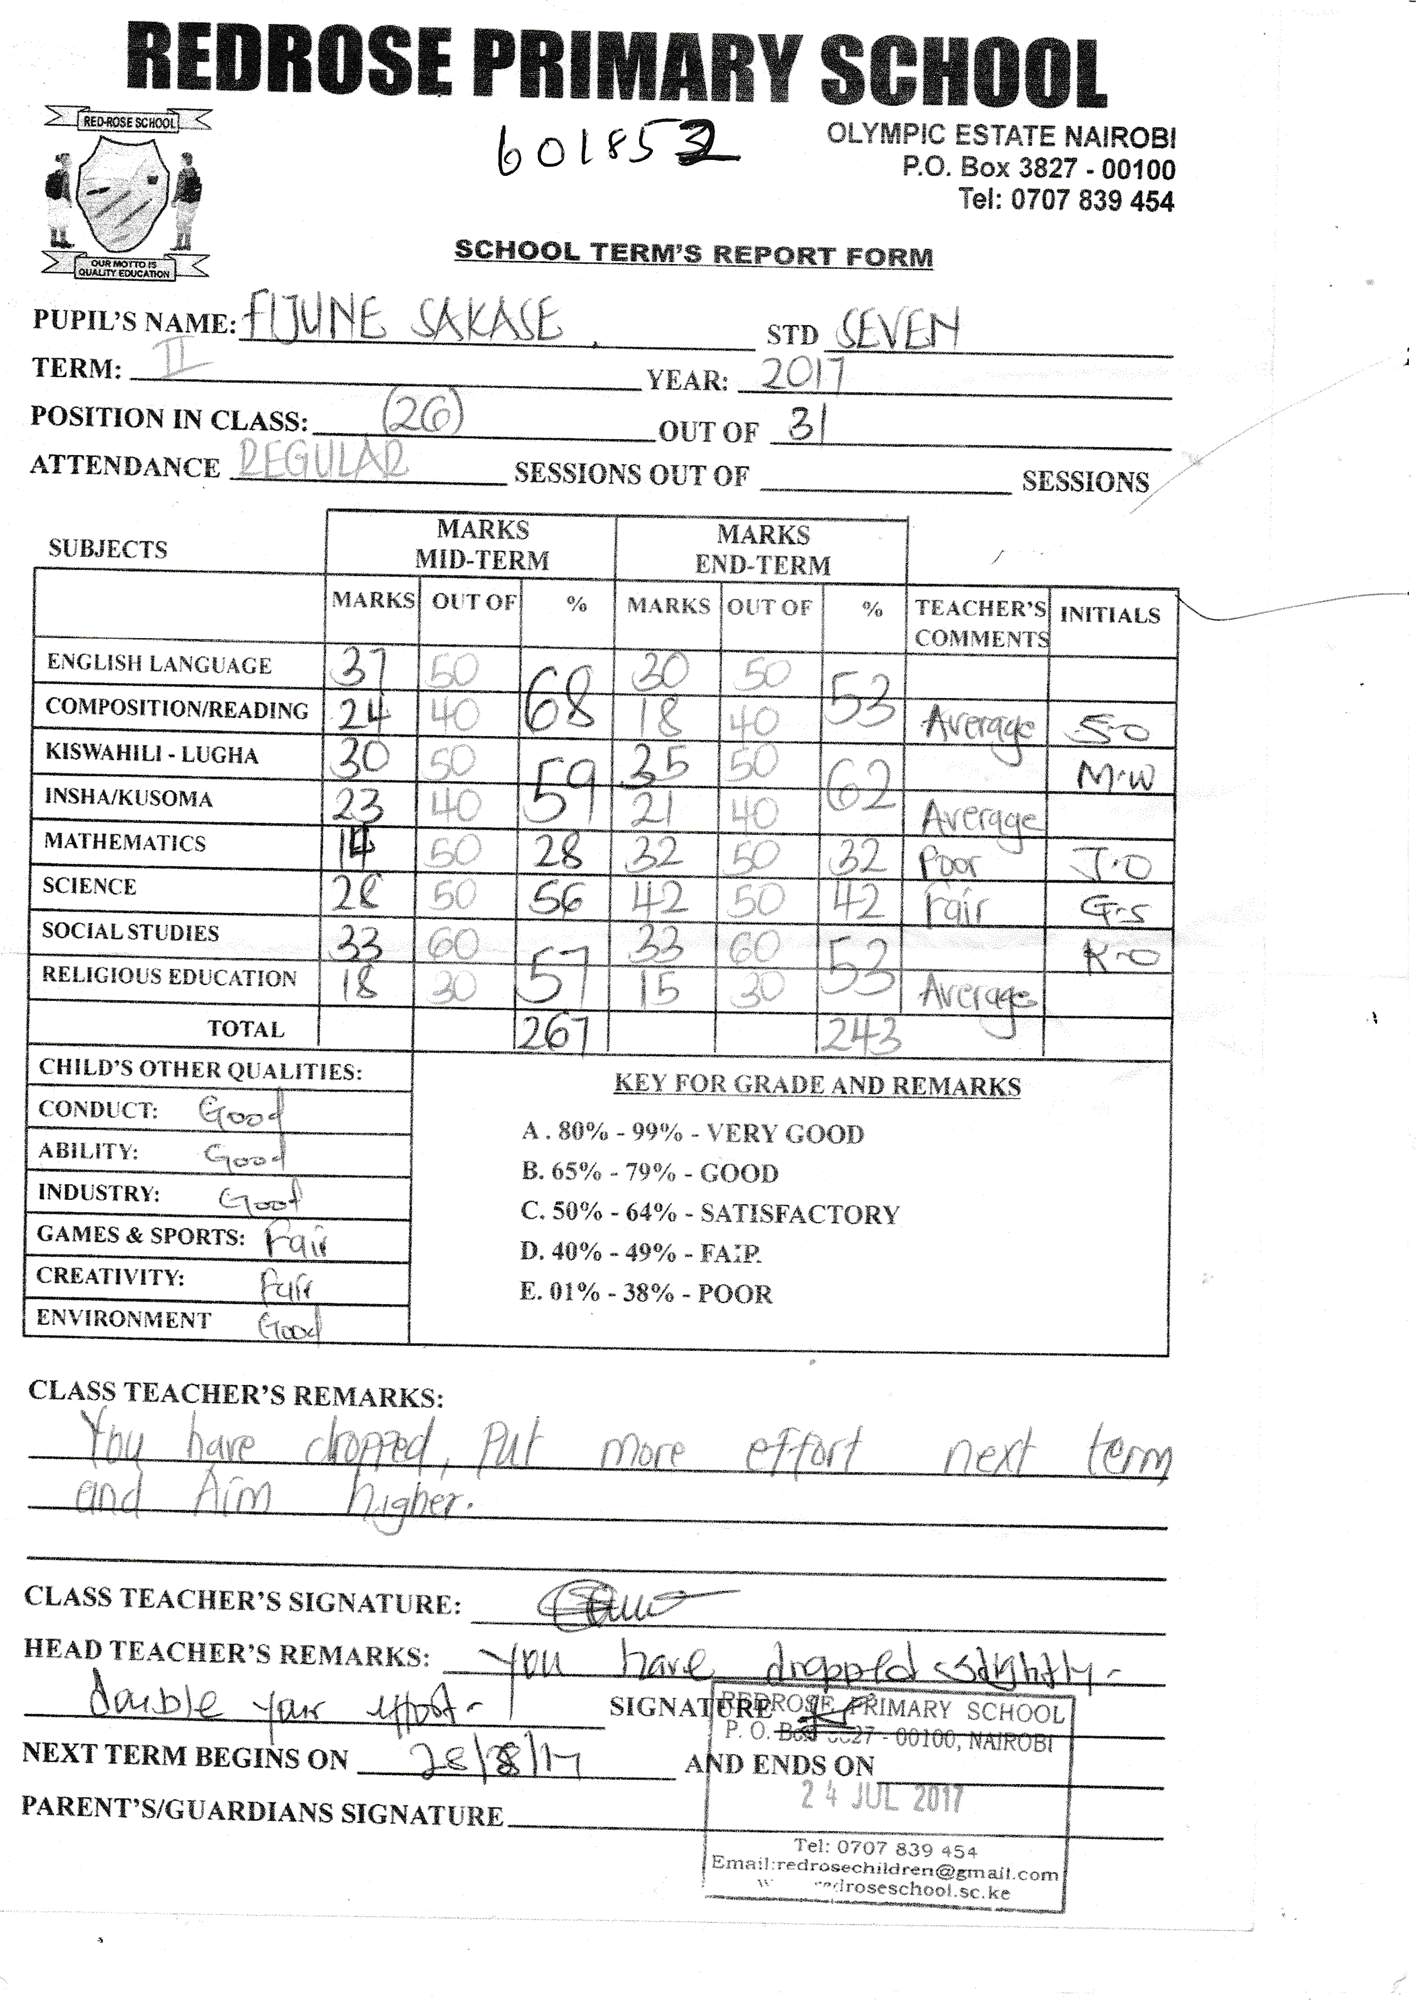 REDROSE PRIMARY SCHOOL
RED-ROSE SCHOOL
OUR MOTTO IS
QUALITY EDUCATION
601852
OLYMPIC ESTATE NAIROBI
P.O. Box 3827 - 00100
Tel: 0707 839 454
SCHOOL TERM'S REPORT FORM
PUPIL'S NAME: FIJUNE SAKASE STD SEVEN
TERM: II YEAR: 2017
POSITION IN CLASS: (26) OUT OF 31
ATTENDANCE REGULAR SESSIONS OUT OF SESSIONS
SUBJECTS MARKS MID-TERM MARKS END-TERM
MARKS OUT OF % MARKS OUT OF % TEACHER'S COMMENTS INITIALS
ENGLISH LANGUAGE 37 50 68 30 50 53
COMPOSITION/READING 24 40 18 40 Average S.O
KISWAHILI - LUGHA 30 50 59 35 50 62 M.W
INSHA/KUSOMA 23 40 21 40 Average
MATHEMATICS 14 50 28 32 50 32 Poor J.O
SCIENCE 28 50 56 42 50 42 Fair G.S
SOCIAL STUDIES 33 60 57 33 60 53 K.O
RELIGIOUS EDUCATION 18 30 15 30 Average
TOTAL 267 243
CHILD'S OTHER QUALITIES:
CONDUCT: Good
ABILITY: Good
INDUSTRY: Good
GAMES & SPORTS: Fair
CREATIVITY: Fair
ENVIRONMENT Good
KEY FOR GRADE AND REMARKS
A. 80% - 99% - VERY GOOD
B. 65% - 79% - GOOD
C. 50% - 64% - SATISFACTORY
D. 40% - 49% - FAIR.
E. 01% - 38% - POOR
CLASS TEACHER'S REMARKS:
You have dropped, Put more effort next term
and Aim higher.
CLASS TEACHER'S SIGNATURE:
HEAD TEACHER'S REMARKS: You have dropped slightly -
double your effort - SIGNATURE
NEXT TERM BEGINS ON 28/8/17 AND ENDS ON
PARENT'S/GUARDIANS SIGNATURE
REDROSE PRIMARY SCHOOL
P. O. Box 3827 - 00100, NAIROBI
24 JUL 2017
Tel: 0707 839 454
Email:redrosechildren@gmail.com
droseschool.sc.ke